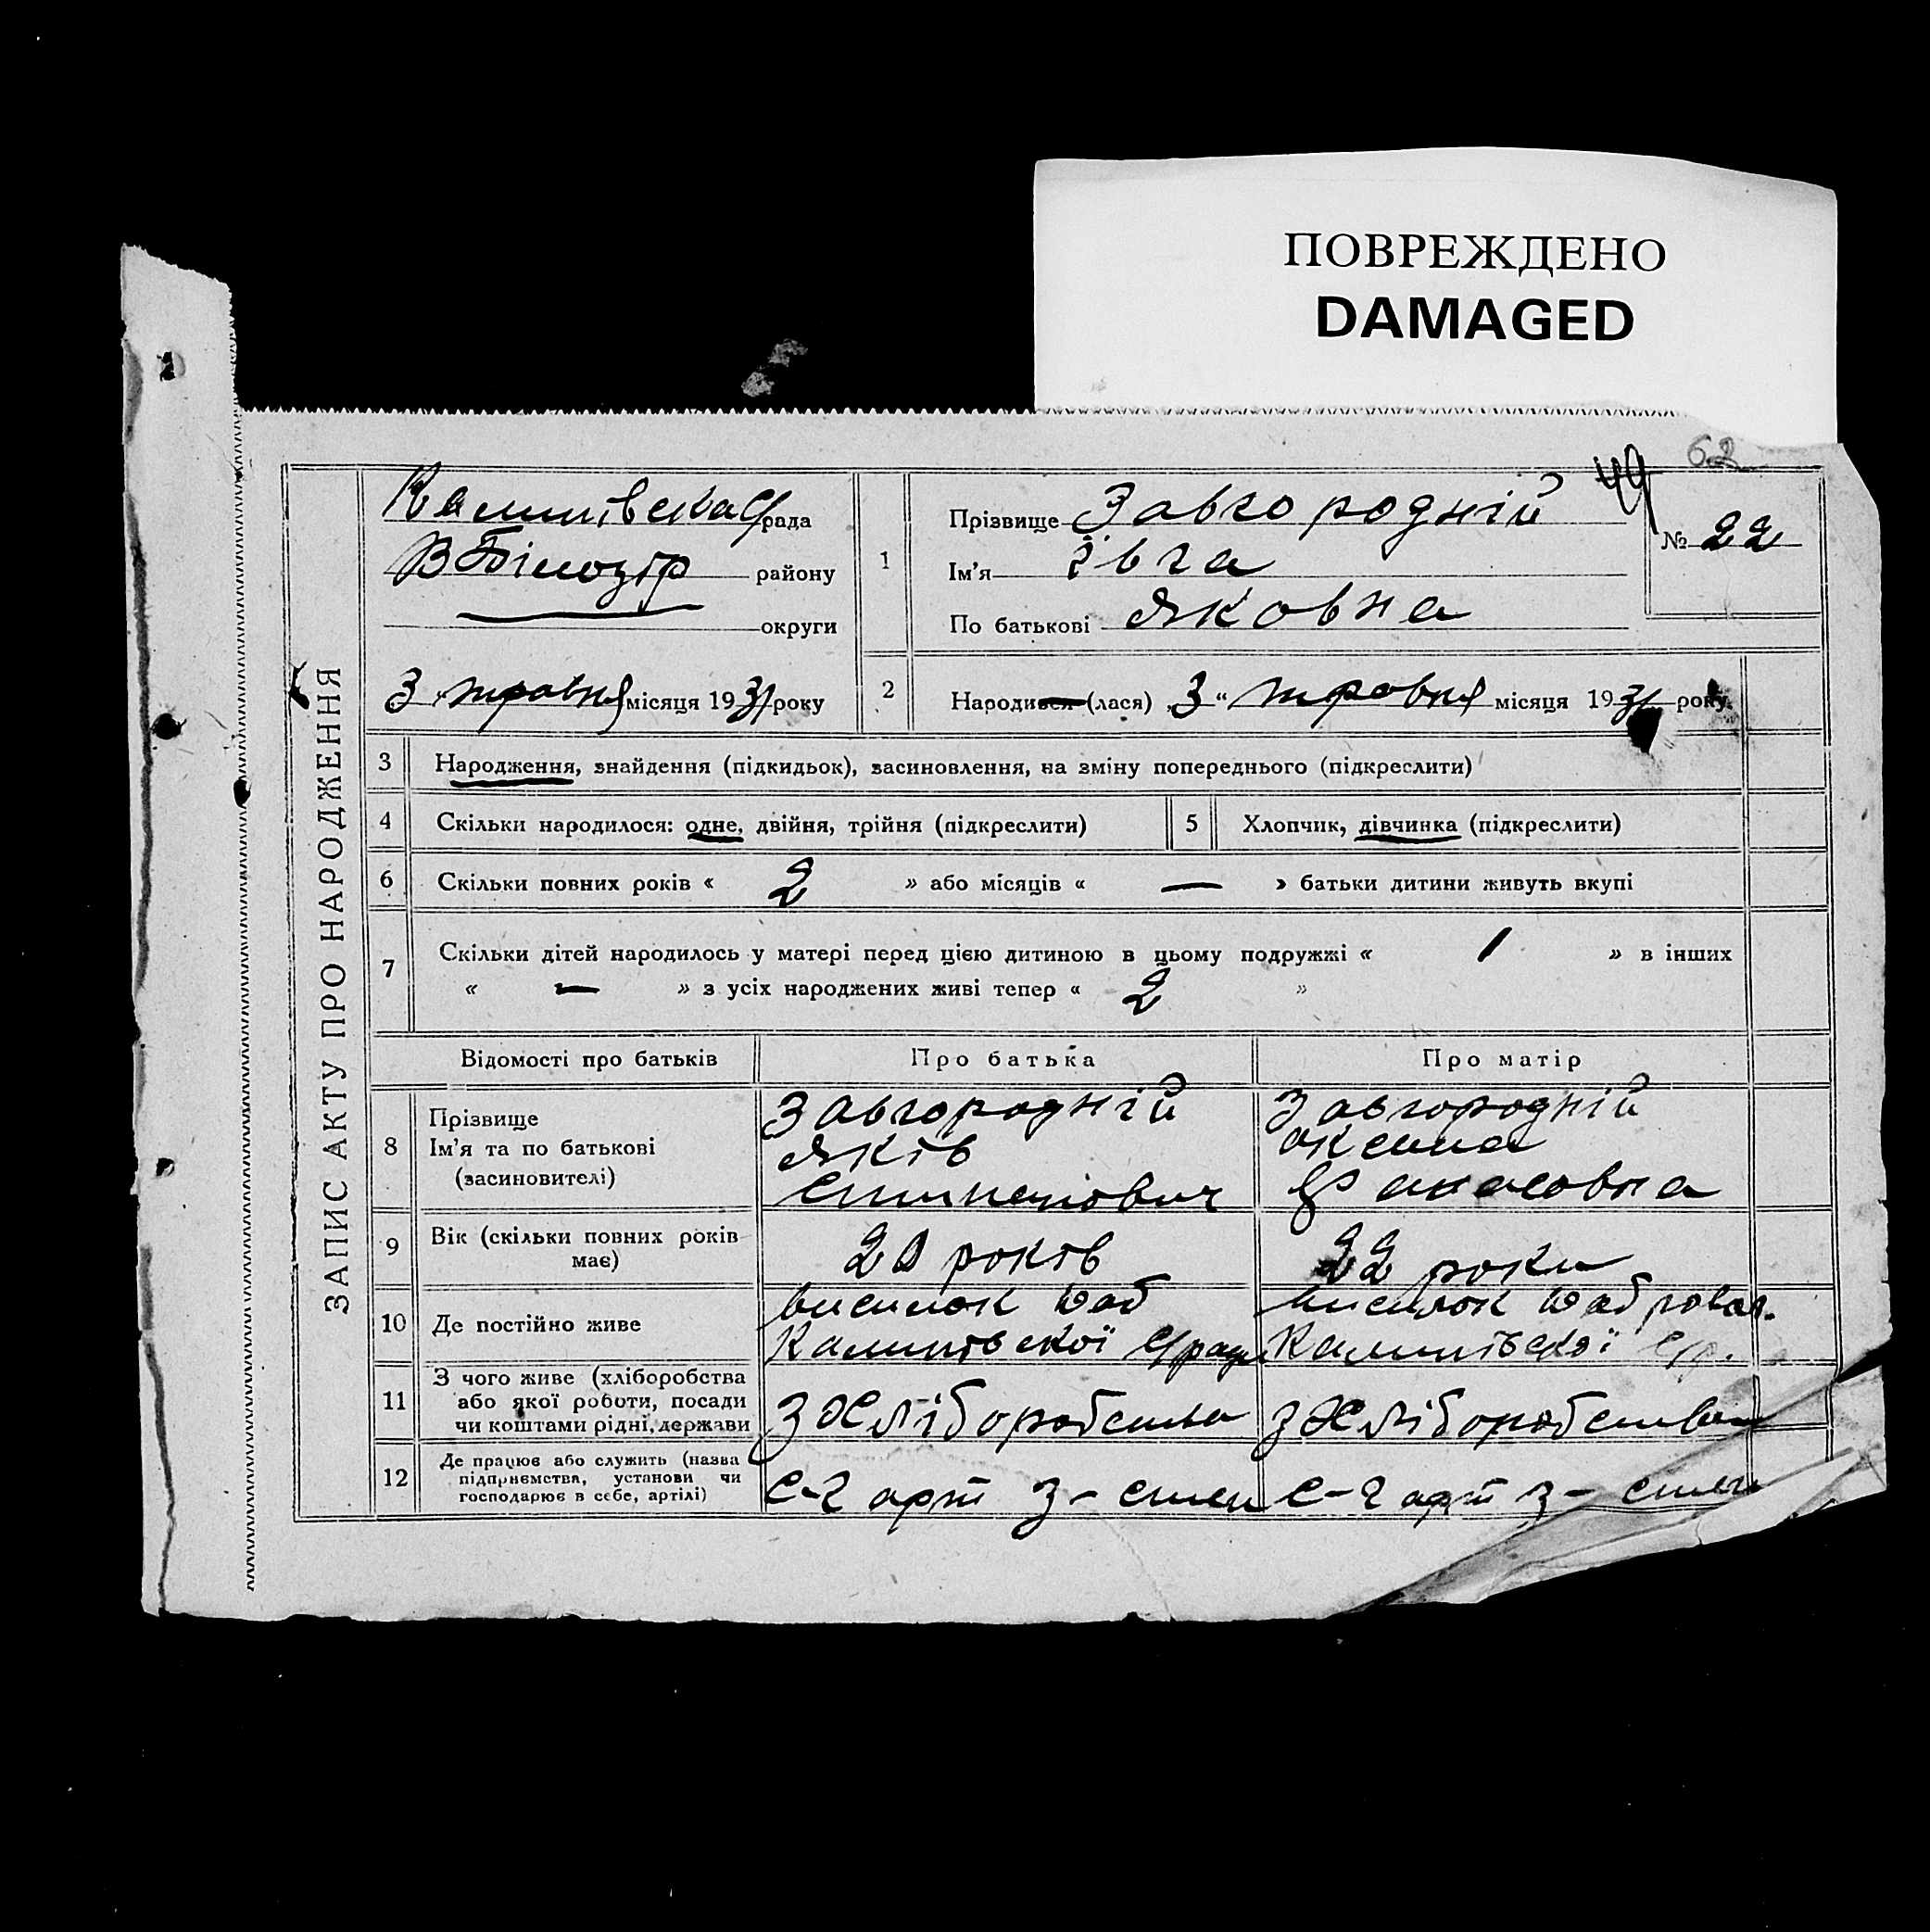 ПОВРЕЖДЕНО
DAMAGED
62
49
ЗАПИС АКТУ ПРО НАРОДЖЕННЯ
рада
ВБілозір району
округи
3 травня місяця 1931 року
1
Прізвище Завгородній
Ім'я Івга
По батькові Яковна
№ 22
2 Народився (лася) „3“ травня місяця 1931 року
3 Народження, знайдення (підкидьок), засиновлення, на зміну попереднього (підкреслити)
4 Скільки народилося: одне, двійня, трійня (підкреслити) 5 Хлопчик, дівчинка (підкреслити)
6 Скільки повних років « 2 » або місяців « — » батьки дитини живуть вкупі
7 Скільки дітей народилось у матері перед цією дитиною в цьому подружжі « 1 » в інших
« — » з усіх народжених живі тепер « 2 »
Відомості про батьків Про батька Про матір
8 Прізвище
Ім'я та по батькові
(засиновителі)
Завгородній
Яків
Завгородній
9 Вік (скільки повних років
має)
років
22 роки
10 Де постійно живе
висилок
с/ради
висилок
с/р.
11 З чого живе (хліборобства
або якої роботи, посади
чи коштами рідні, держави
З Хліборобства
З Хліборобства
12 Де працює або служить (назва
підприємства, установи чи
господарює в себе, артілі)
С-г арт
С-г арт